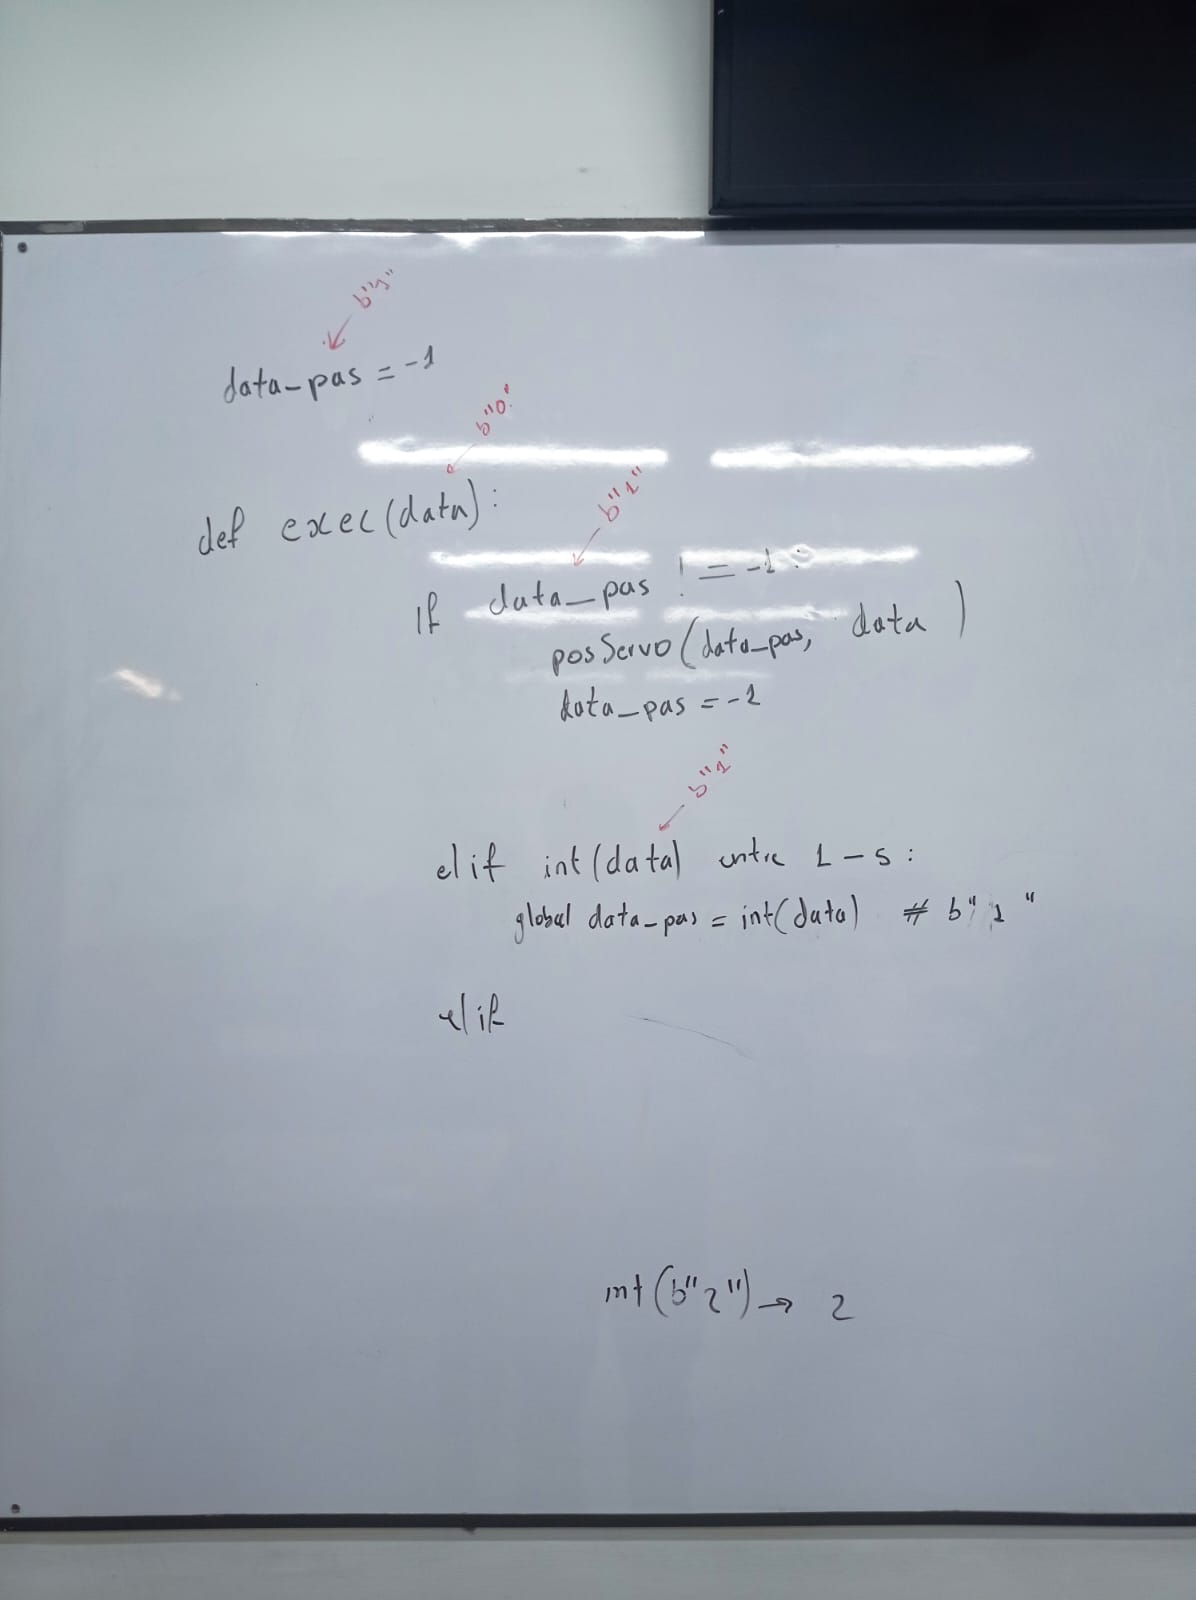 b"1"
data_pas = -1
b"0"
def exec(data):
b"1"
if data_pas != -1:
posServo(data_pas, data)
data_pas = -1
b"1"
elif int(data) entre 1-5:
global data_pas = int(data) # b"1"
elif
int(b"2") → 2